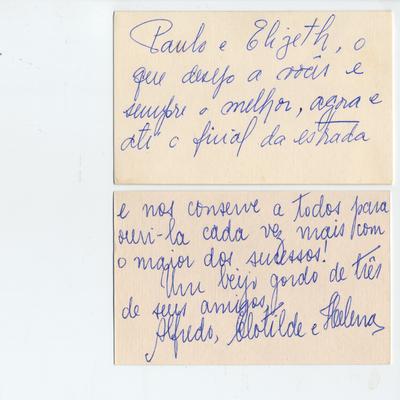 Paulo e Elizeth, o
que desejo a vocês e
sempre o melhor, agora e
até o final da estrada
e nos conserve a todos para
ouvi-la cada vez mais com
o maior dos sucessos!
Um beijo gordo de três
de seus amigos,
Alfredo, Clotilde e Helena